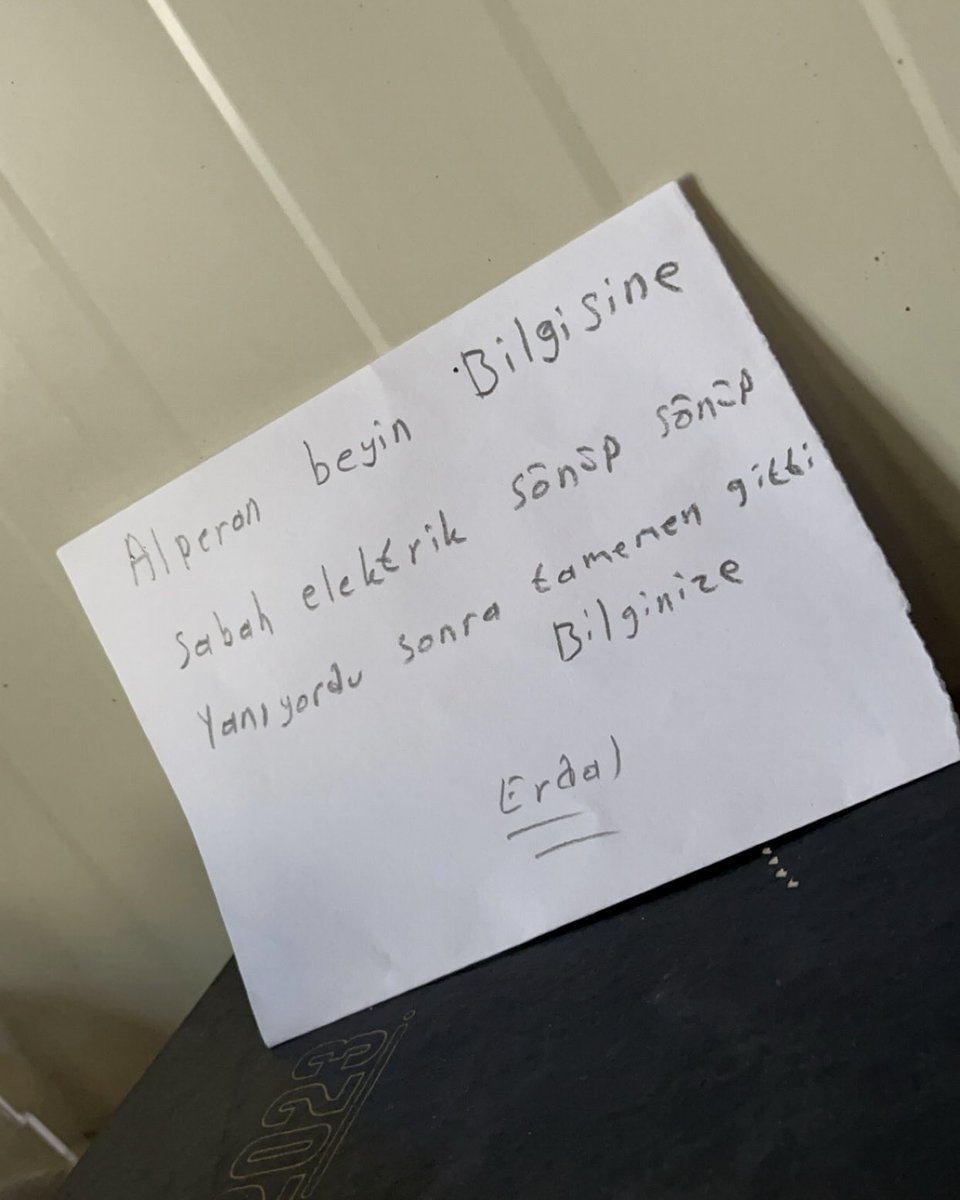 Alperen beyin Bilgisine
Sabah elektrik sönüp sönüp
Yanıyordu sonra tamemen gitti
Bilginize
Erdal
2023